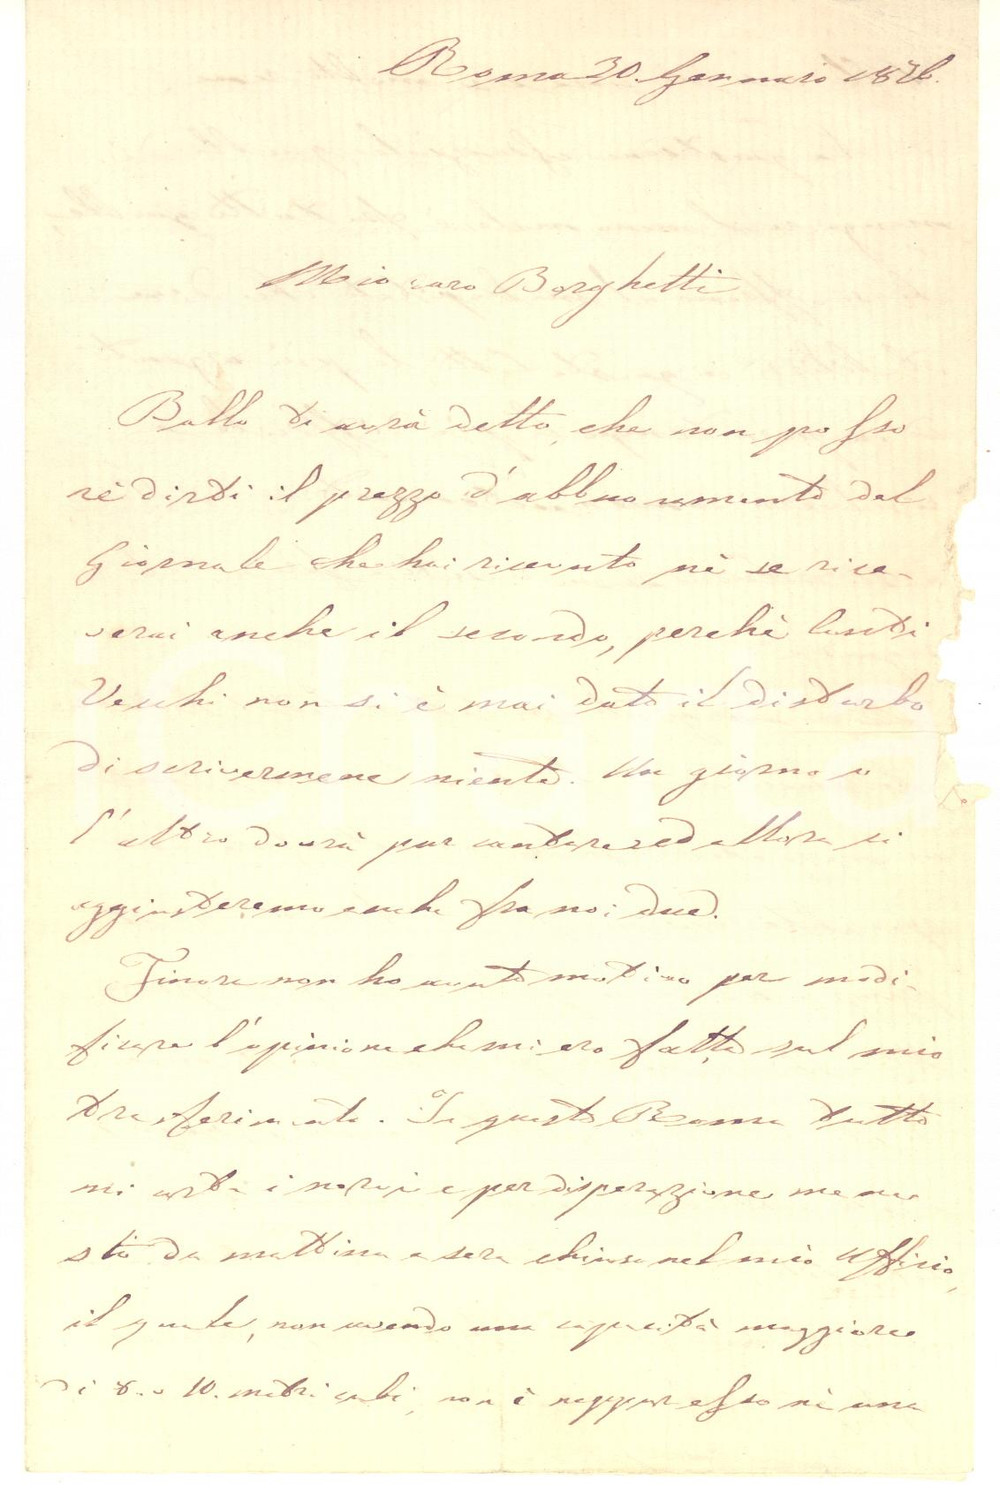 Roma 30. Gennaro 1876.
Mio caro Borghetti
Ballo ti avrà detto, che non posso
nè dirti il prezzo d'abbuonamento del
Giornale che hai ricevuto nè se rice-
verai anche il secondo, perchè
Vecchi non si è mai dato il disturbo
di scrivermene niente. Un giorno o
l'altro dovrà pur cantare ed allora si
aggiusteremo anche fra noi due.
Finora non ho avuto motivo per modi-
ficare l'opinione che mi ero fatta sul mio
trasferimento. In questa Roma tutto
mi urta i nervi e per disperazione me ne
sto da mattina a sera chiuso nel mio Ufficio,
il quale, non avendo una capacità maggiore
di 8. o 10. metri cubi, non è neppur esso nè una